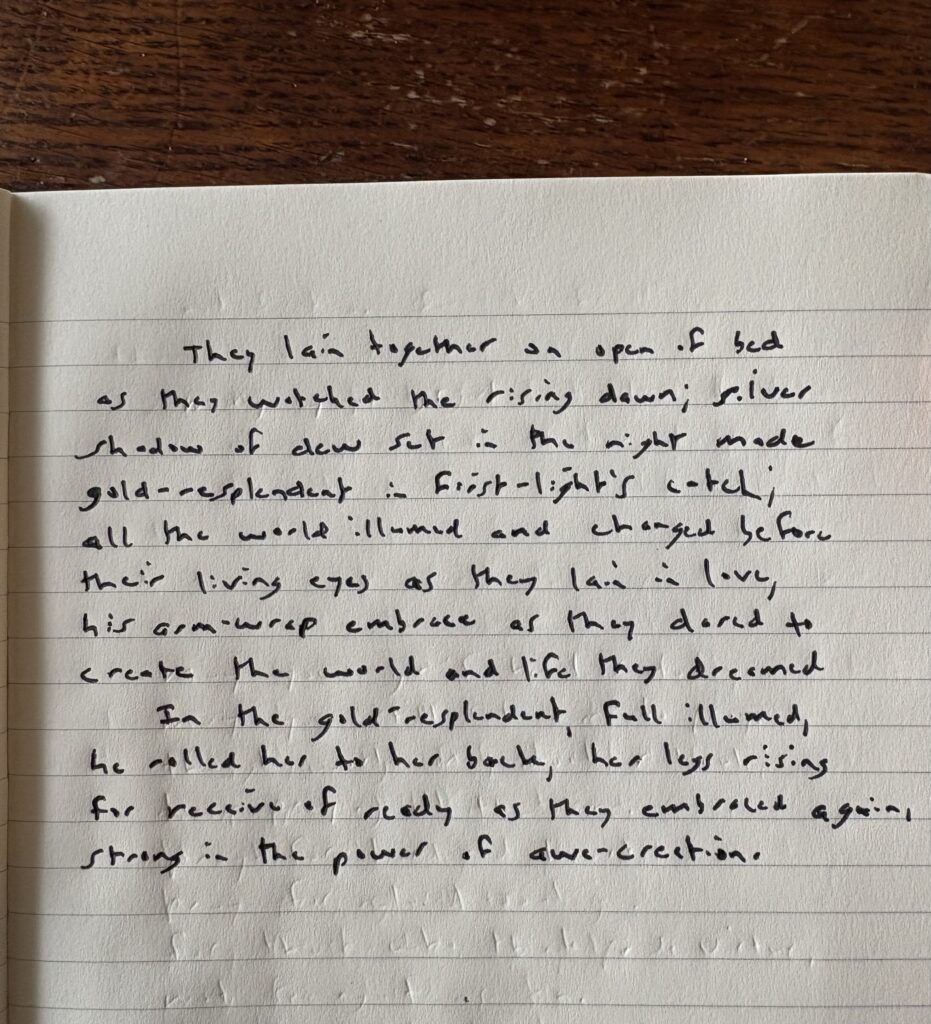 They lain together on open of bed
as they watched the rising dawn; silver
shadow of dew set in the night made
gold-resplendent in first-light's catch;
all the world illumed and changed before
their living eyes as they lain in love,
his arm-wrap embrace as they dared to
create the world and life they dreamed
In the gold-resplendent, full illumed,
he rolled her to her back, her legs rising
for receive of ready as they embraced again,
strong in the power of awe-creation.